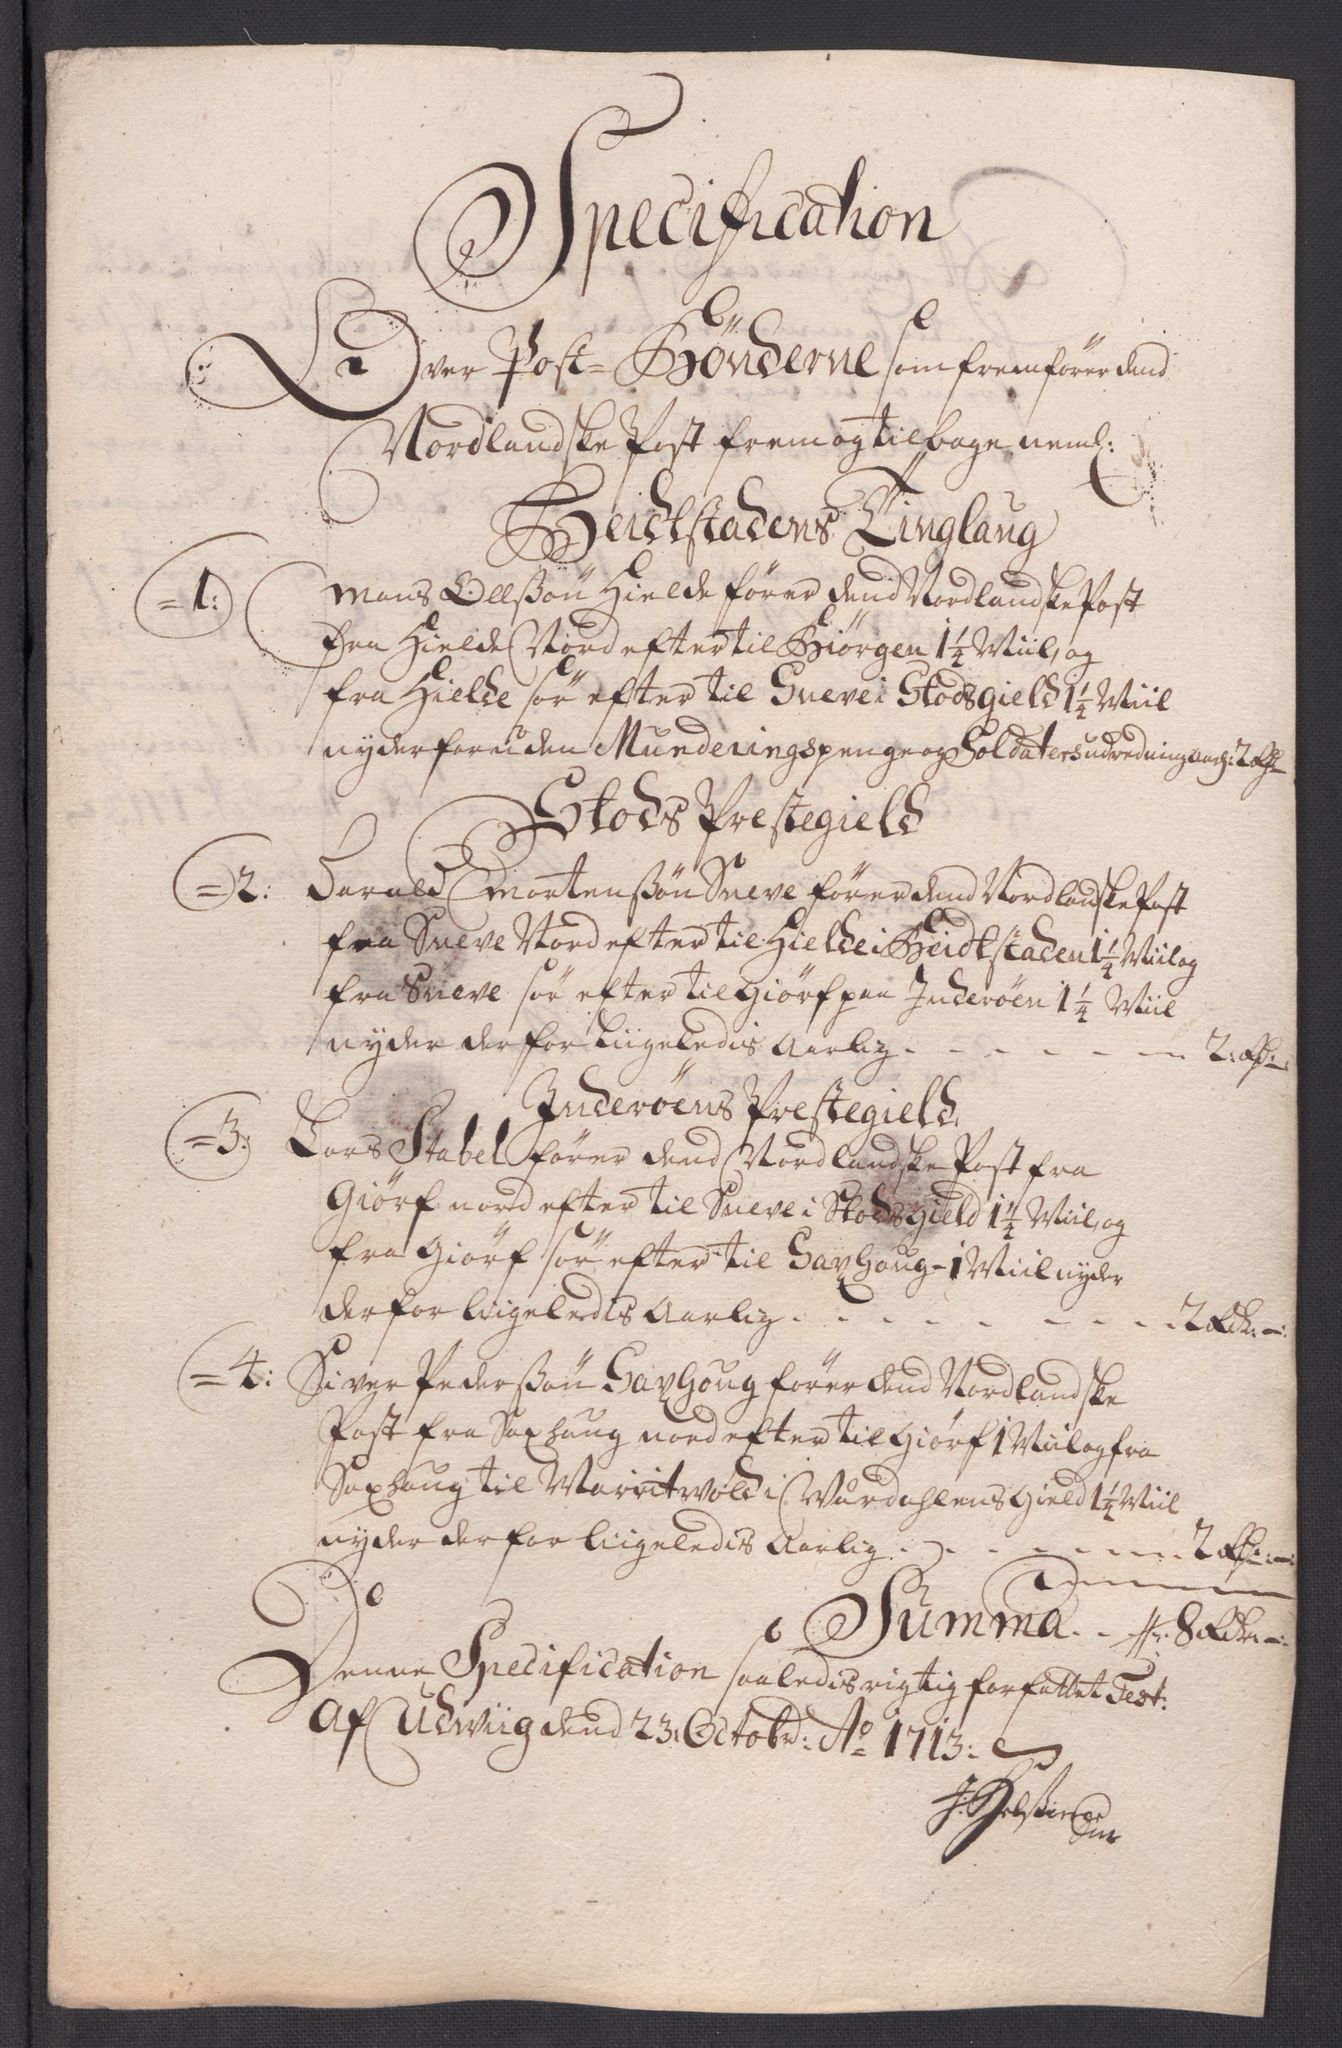 Specification
Over Post-Bønderne som fremfører dend
Nordlandske Post frem og tilbage neml:
Beidstadens Tinglaug
=1: Mons Ollßøn Hielde fører dend Nordlandske Post
fra Hielde Nord efter til Biørgen 1¼ Miil, og
fra Hielde sør efter til Sneve i Stods gield 1¼ Miil
nyder foruden Munderingspenge og Soldaters udredning aarl: 2 Rdr
Stods Prestegield
=2: Harald Mortenßøn Sneve fører dend Nordlandske Post
fra Sneve Nord efter til Hielde i Beidstaden 1¼ Miil og
fra Sneve sør efter til Giörf paa Inderøen 1¼ Miil
nyder derfor liigeledis Aarlig - - - - - - 2: Rdr: -
Inderøens Prestegield
=3: Lars Stabel fører dend Nordlandske Post fra
Giörf nord efter til Sneve i Stods Gield 1¼ Miil, og
fra Giörf sør efter til Saxhoug - 1 Miil nyder
derfor liigeledis Aarlig - - - - - - - - 2 Rdr: -:
=4: Siver Pederßøn Saxhoug fører dend Nordlandske
Post fra Saxhaug nord efter til Giörf 1 Miil og fra
Saxhaug til Marritwold i Wurdahlens Gield 1¼ Miil
nyder derfor liigeledis Aarlig - - - - - - - 2 Rdr: -:
Summa - - 8 Rdr: -:
Denne Specification saaledis rigtig forfattet Test:
Af Udwiig dend 23: Octobr: Ao 1713: